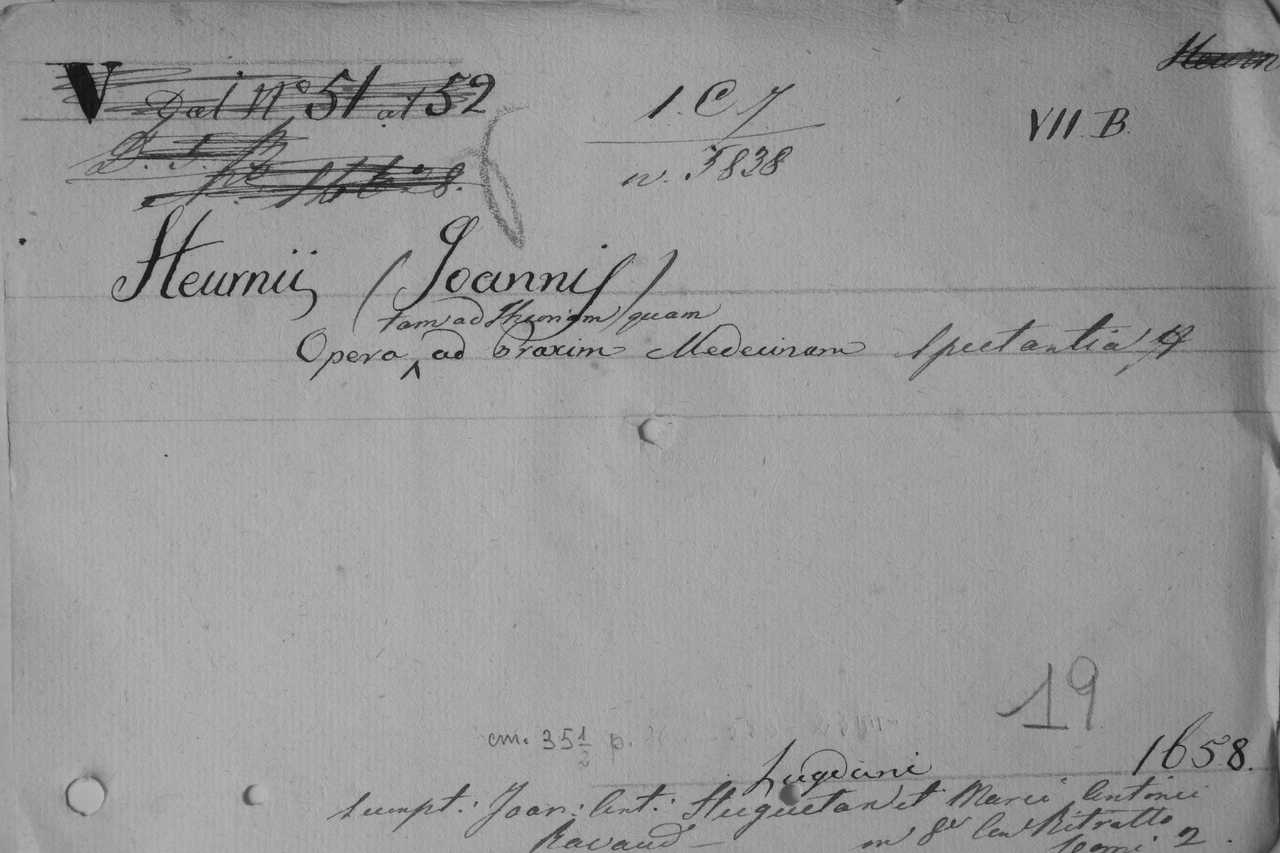 Heurn
V Dal N.° 51 al 52
1. C 7
VII. B.
n. 3838
Heurnii (Joannis)
tam ad Theoriam quam
Opera ad Praxim Medecinam Spectantia
19
cm. 35 1/2 p.
Lugduni 1658.
sumpt.: Joan: Ant.: Huguetan et Marci Antonii
Ravaud – in 8° con Ritratto
Tomi 2